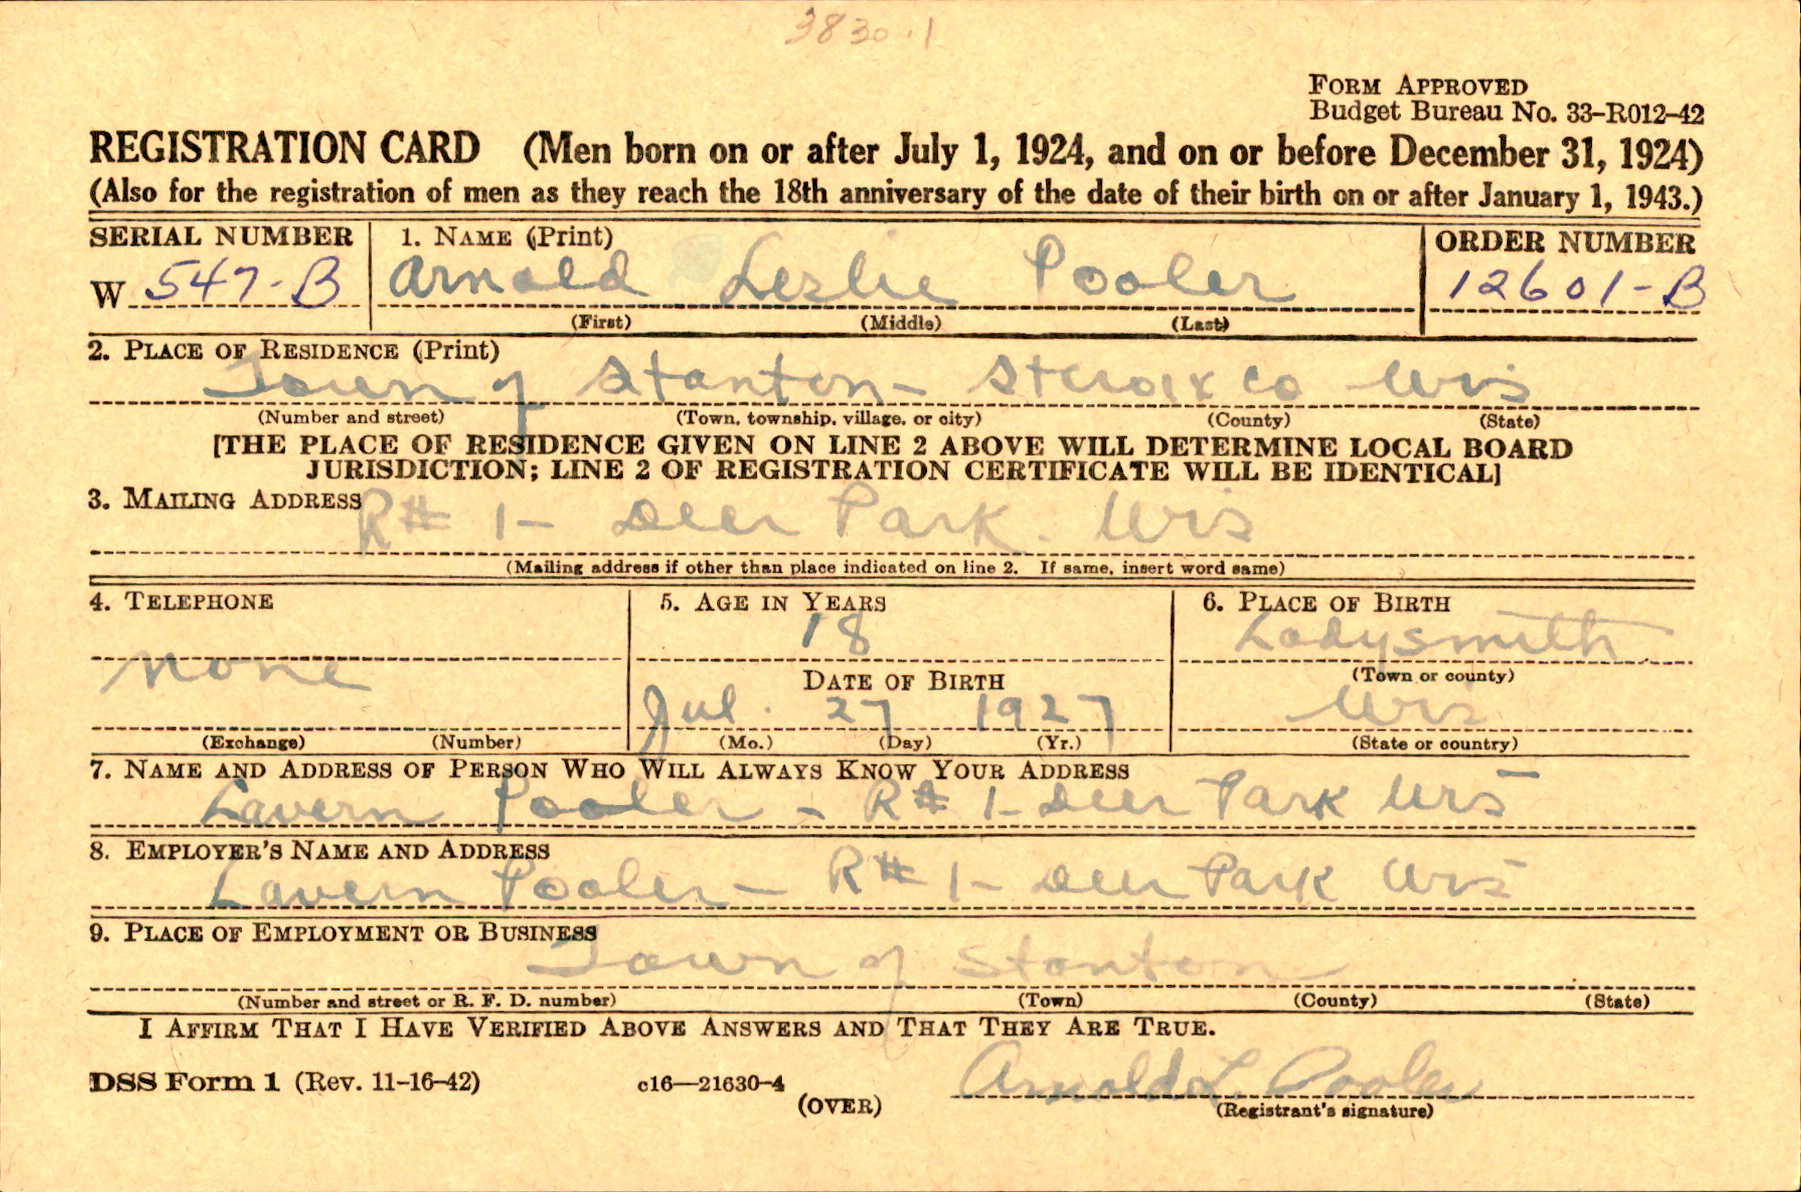 3830.1
FORM APPROVED
Budget Bureau No. 33-R012-42
REGISTRATION CARD (Men born on or after July 1, 1924, and on or before December 31, 1924)
(Also for the registration of men as they reach the 18th anniversary of the date of their birth on or after January 1, 1943.)
SERIAL NUMBER 1. NAME (Print) ORDER NUMBER
W 547-B Arnold Leslie Pooler 12601-B
(First) (Middle) (Last)
2. PLACE OF RESIDENCE (Print)
Town of Stanton - St Croix Co Wis
(Number and street) (Town, township, village, or city) (County) (State)
[THE PLACE OF RESIDENCE GIVEN ON LINE 2 ABOVE WILL DETERMINE LOCAL BOARD
JURISDICTION; LINE 2 OF REGISTRATION CERTIFICATE WILL BE IDENTICAL]
3. MAILING ADDRESS
R# 1- Deer Park. Wis
(Mailing address if other than place indicated on line 2. If same, insert word same)
4. TELEPHONE 5. AGE IN YEARS 6. PLACE OF BIRTH
none 18 Ladysmith
DATE OF BIRTH (Town or county)
Jul. 27 1927 Wis
(Exchange) (Number) (Mo.) (Day) (Yr.) (State or country)
7. NAME AND ADDRESS OF PERSON WHO WILL ALWAYS KNOW YOUR ADDRESS
Lavern Pooler - R# 1- Deer Park Wis
8. EMPLOYER'S NAME AND ADDRESS
Lavern Pooler - R# 1- Deer Park Wis
9. PLACE OF EMPLOYMENT OR BUSINESS
Town of Stanton
(Number and street or R. F. D. number) (Town) (County) (State)
I AFFIRM THAT I HAVE VERIFIED ABOVE ANSWERS AND THAT THEY ARE TRUE.
DSS Form 1 (Rev. 11-16-42) c16—21630-4 Arnold L. Pooler
(OVER) (Registrant's signature)